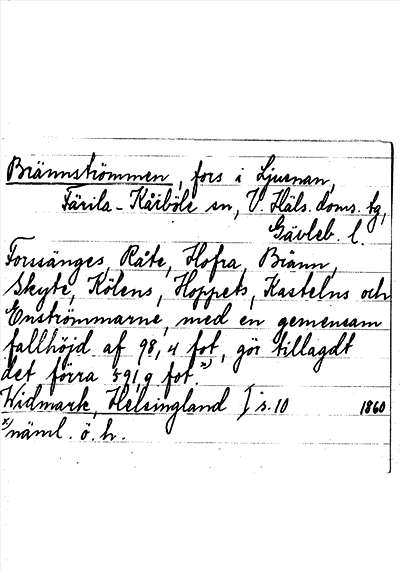 Brännströmmen, fors i Ljusnan,
Färila-Kårböle sn, V. Häls. doms. tg,
Gävleb. l.
Forssänges Råte, Hofra, Bränn,
Skyte, Kölens, Hoppets, Kastelns och
Enströmmarne, med en gemensam
fallhöjd af 98,4 fot, gör tillagdt
det förra 591,9 fot.x)
Widmark, Helsingland I s. 10 1860
x) näml. ö. h.